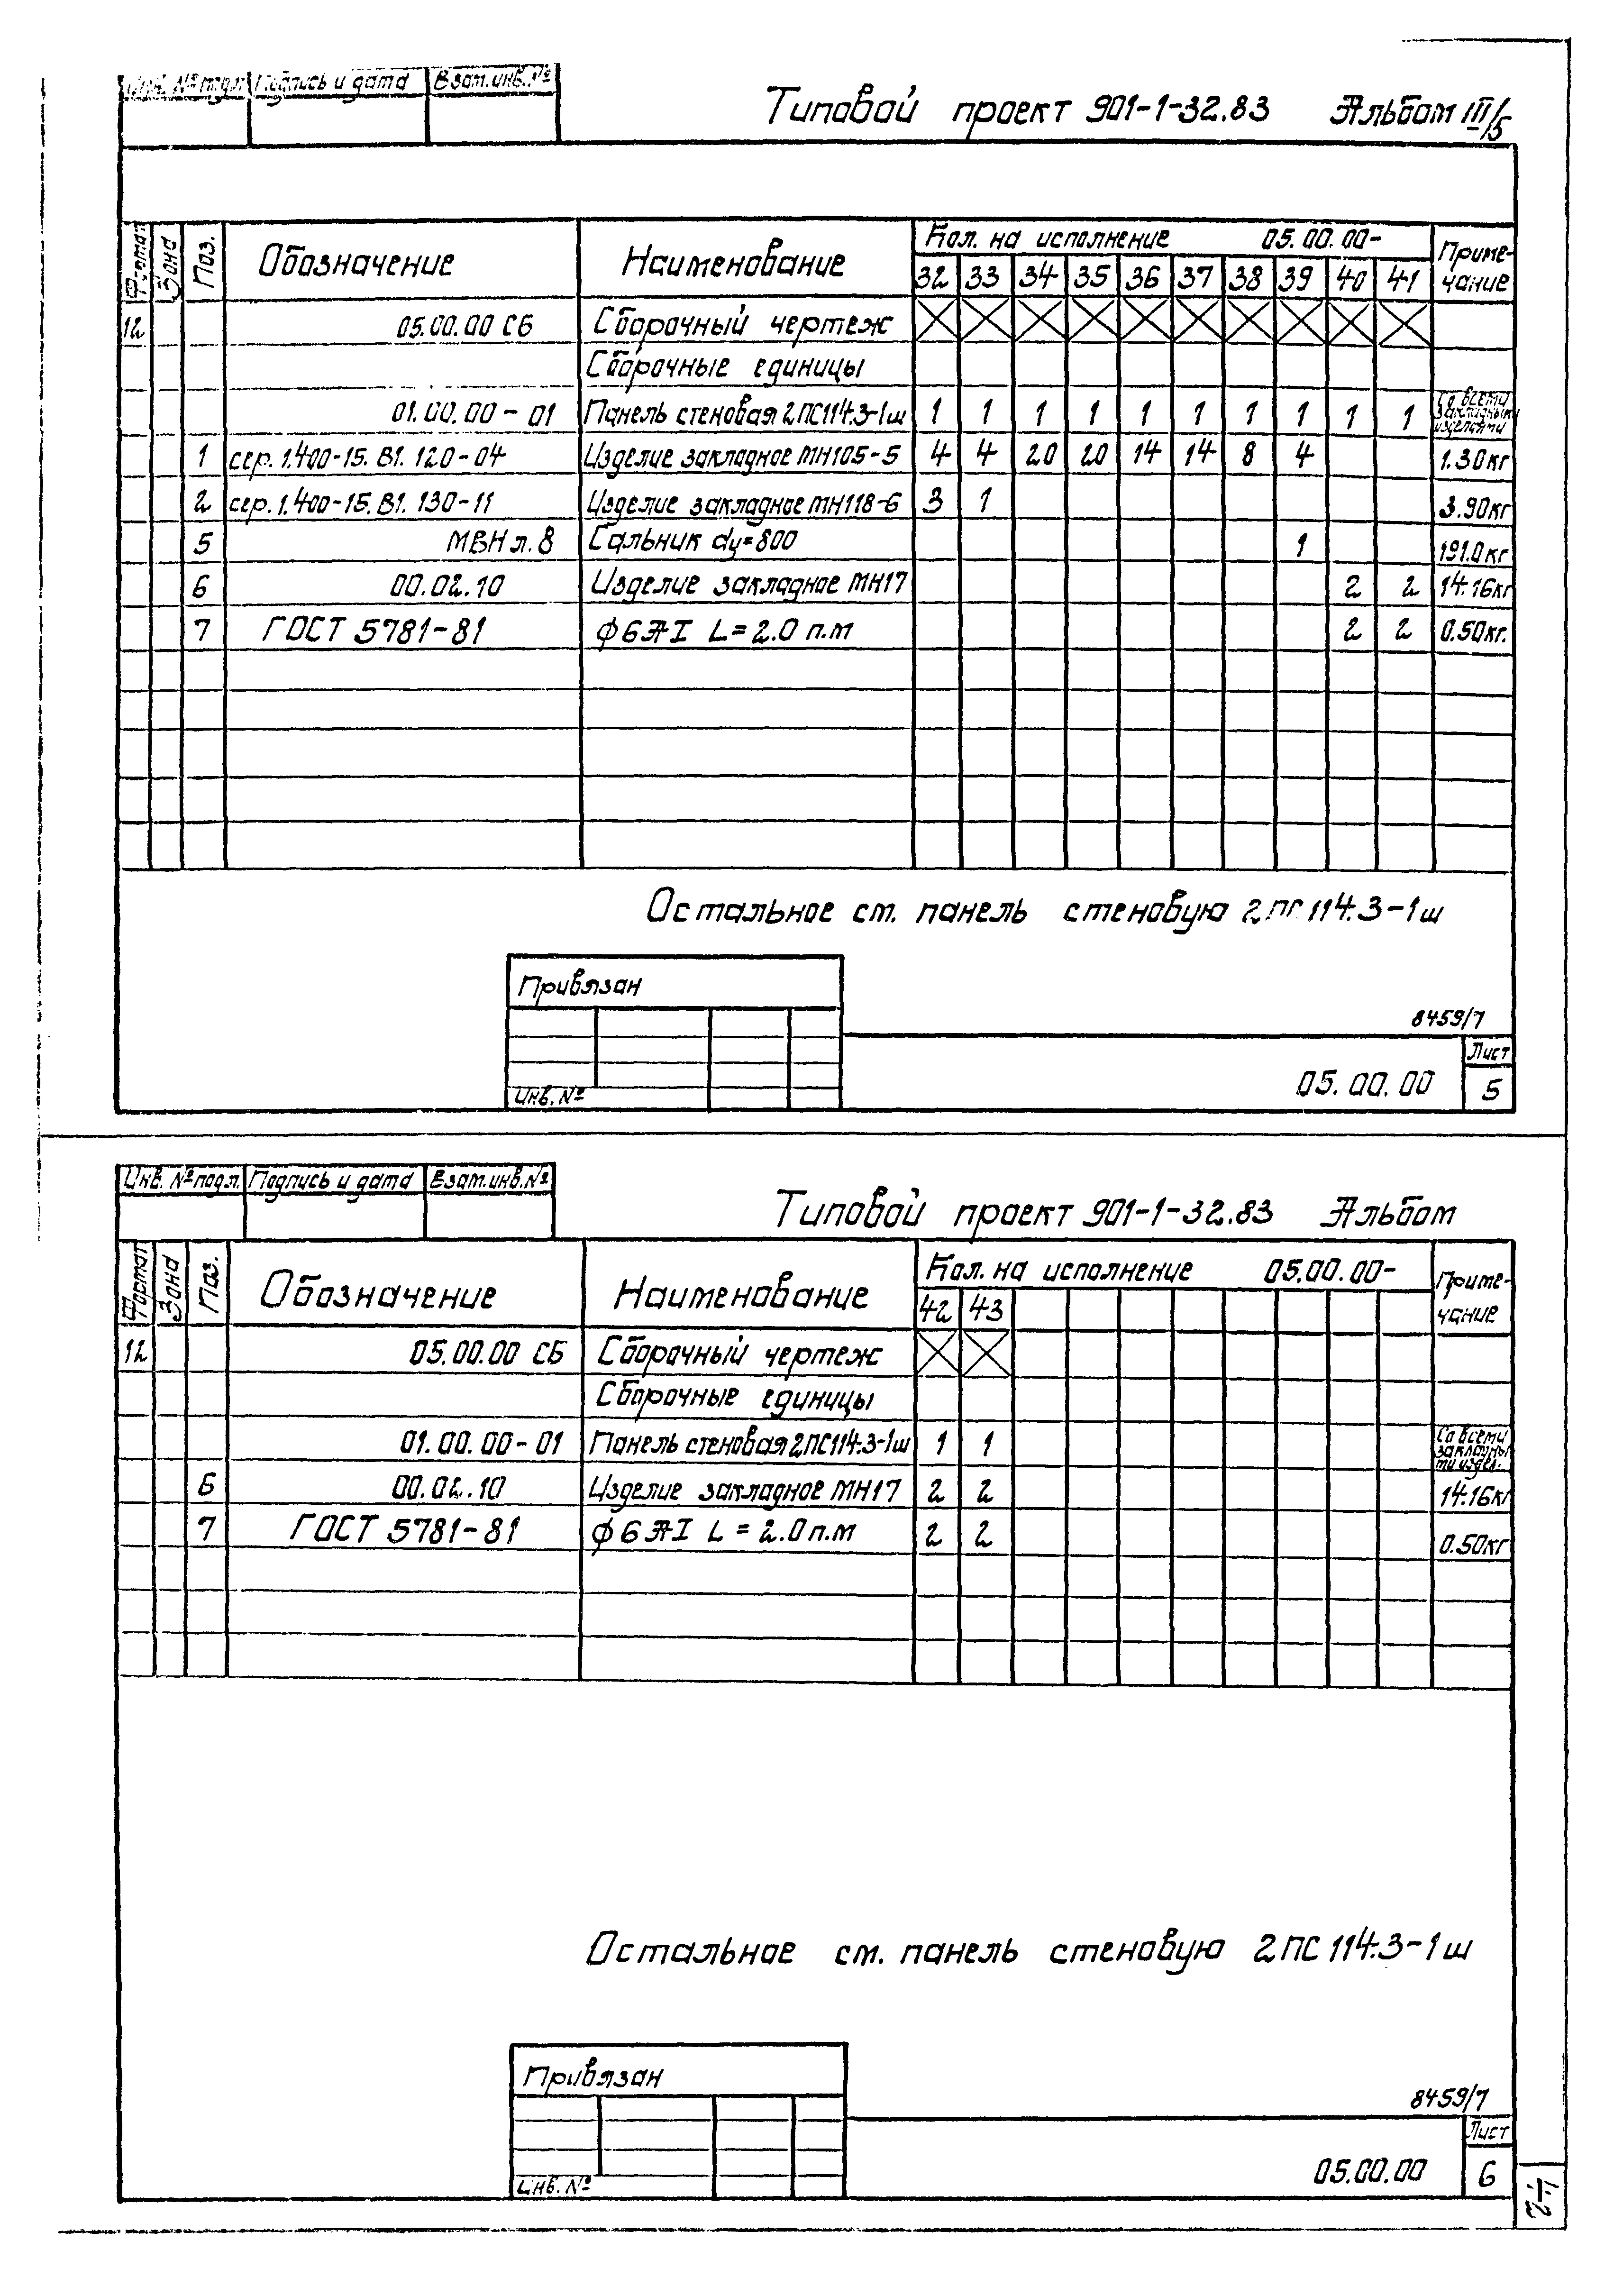 Инв. № подл. Подпись и дата Взам. инв. №
Типовой проект 901-1-32.83 Альбом III/5
Формат Зона Поз. Обозначение Наименование Кол. на исполнение 05.00.00- Приме-чание
32 33 34 35 36 37 38 39 40 41
12 05.00.00 СБ Сборочный чертеж
Сборочные единицы
01.00.00-01 Панель стеновая 2ПС114.3-1ш 1 1 1 1 1 1 1 1 1 1 Со всеми закладными изделиями
1 сер. 1.400-15. В1. 120-04 Изделие закладное МН105-5 4 4 20 20 14 14 8 4 1.30кг
2 сер. 1.400-15. В1. 130-11 Изделие закладное МН118-6 3 1 3.90кг
5 МВН л. 8 Сальник dу=800 1 191.0кг
6 00.02.10 Изделие закладное МН17 2 2 14.16кг
7 ГОСТ 5781-81 ф6АI L=2.0 п.м 2 2 0.50кг.
Остальное см. панель стеновую 2ПС 114.3-1ш
Привязан
8459/7
Лист
05.00.00 5
Инв. №
Инв. № подл. Подпись и дата Взам. инв. №
Типовой проект 901-1-32.83 Альбом
Формат Зона Поз. Обозначение Наименование Кол. на исполнение 05.00.00- Приме-чание
42 43
12 05.00.00 СБ Сборочный чертеж
Сборочные единицы
01.00.00-01 Панель стеновая 2ПС114.3-1ш 1 1 Со всеми закладны ми издел.
6 00.02.10 Изделие закладное МН17 2 2 14.16кг
7 ГОСТ 5781-81 ф6АI L = 2.0 п.м 2 2 0.50кг
Остальное см. панель стеновую 2ПС 114.3-1ш
Привязан
8459/7
Лист
05.00.00 6
Инв. №